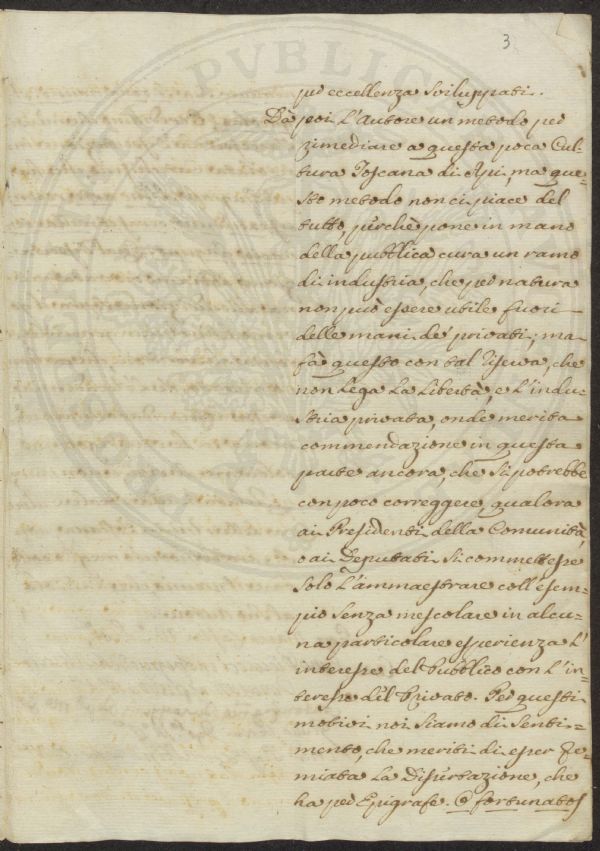 3
per eccellenza sviluppati.
Dà poi L'Autore un metodo per
rimediare a questa poca Cul-
tura Toscana di Api, ma que-
sto metodo non ci piace del
tutto, perchè pone in mano
della pubblica cura un ramo
di industria, che per natura
non può essere utile fuori
delle mani de' privati; ma
fà questo con tal riserva, che
non Lega La Libertà, e L'indu-
stria privata, onde merita
commendazione in questa
parte ancora, che si potrebbe
con poco correggere, qualora
ai Presidenti della Comunità,
o ai Deputati si commettesse
solo L'ammaestrare coll'esem-
pio senza mescolare in alcu-
na particolare esperienza L'
interesse del Pubblico con L'in-
teresse del Privato. Per questi
motivi noi siamo di senti-
mento, che meriti di esser Pre-
miata La Disertazione, che
ha per Epigrafe. O fortunatos